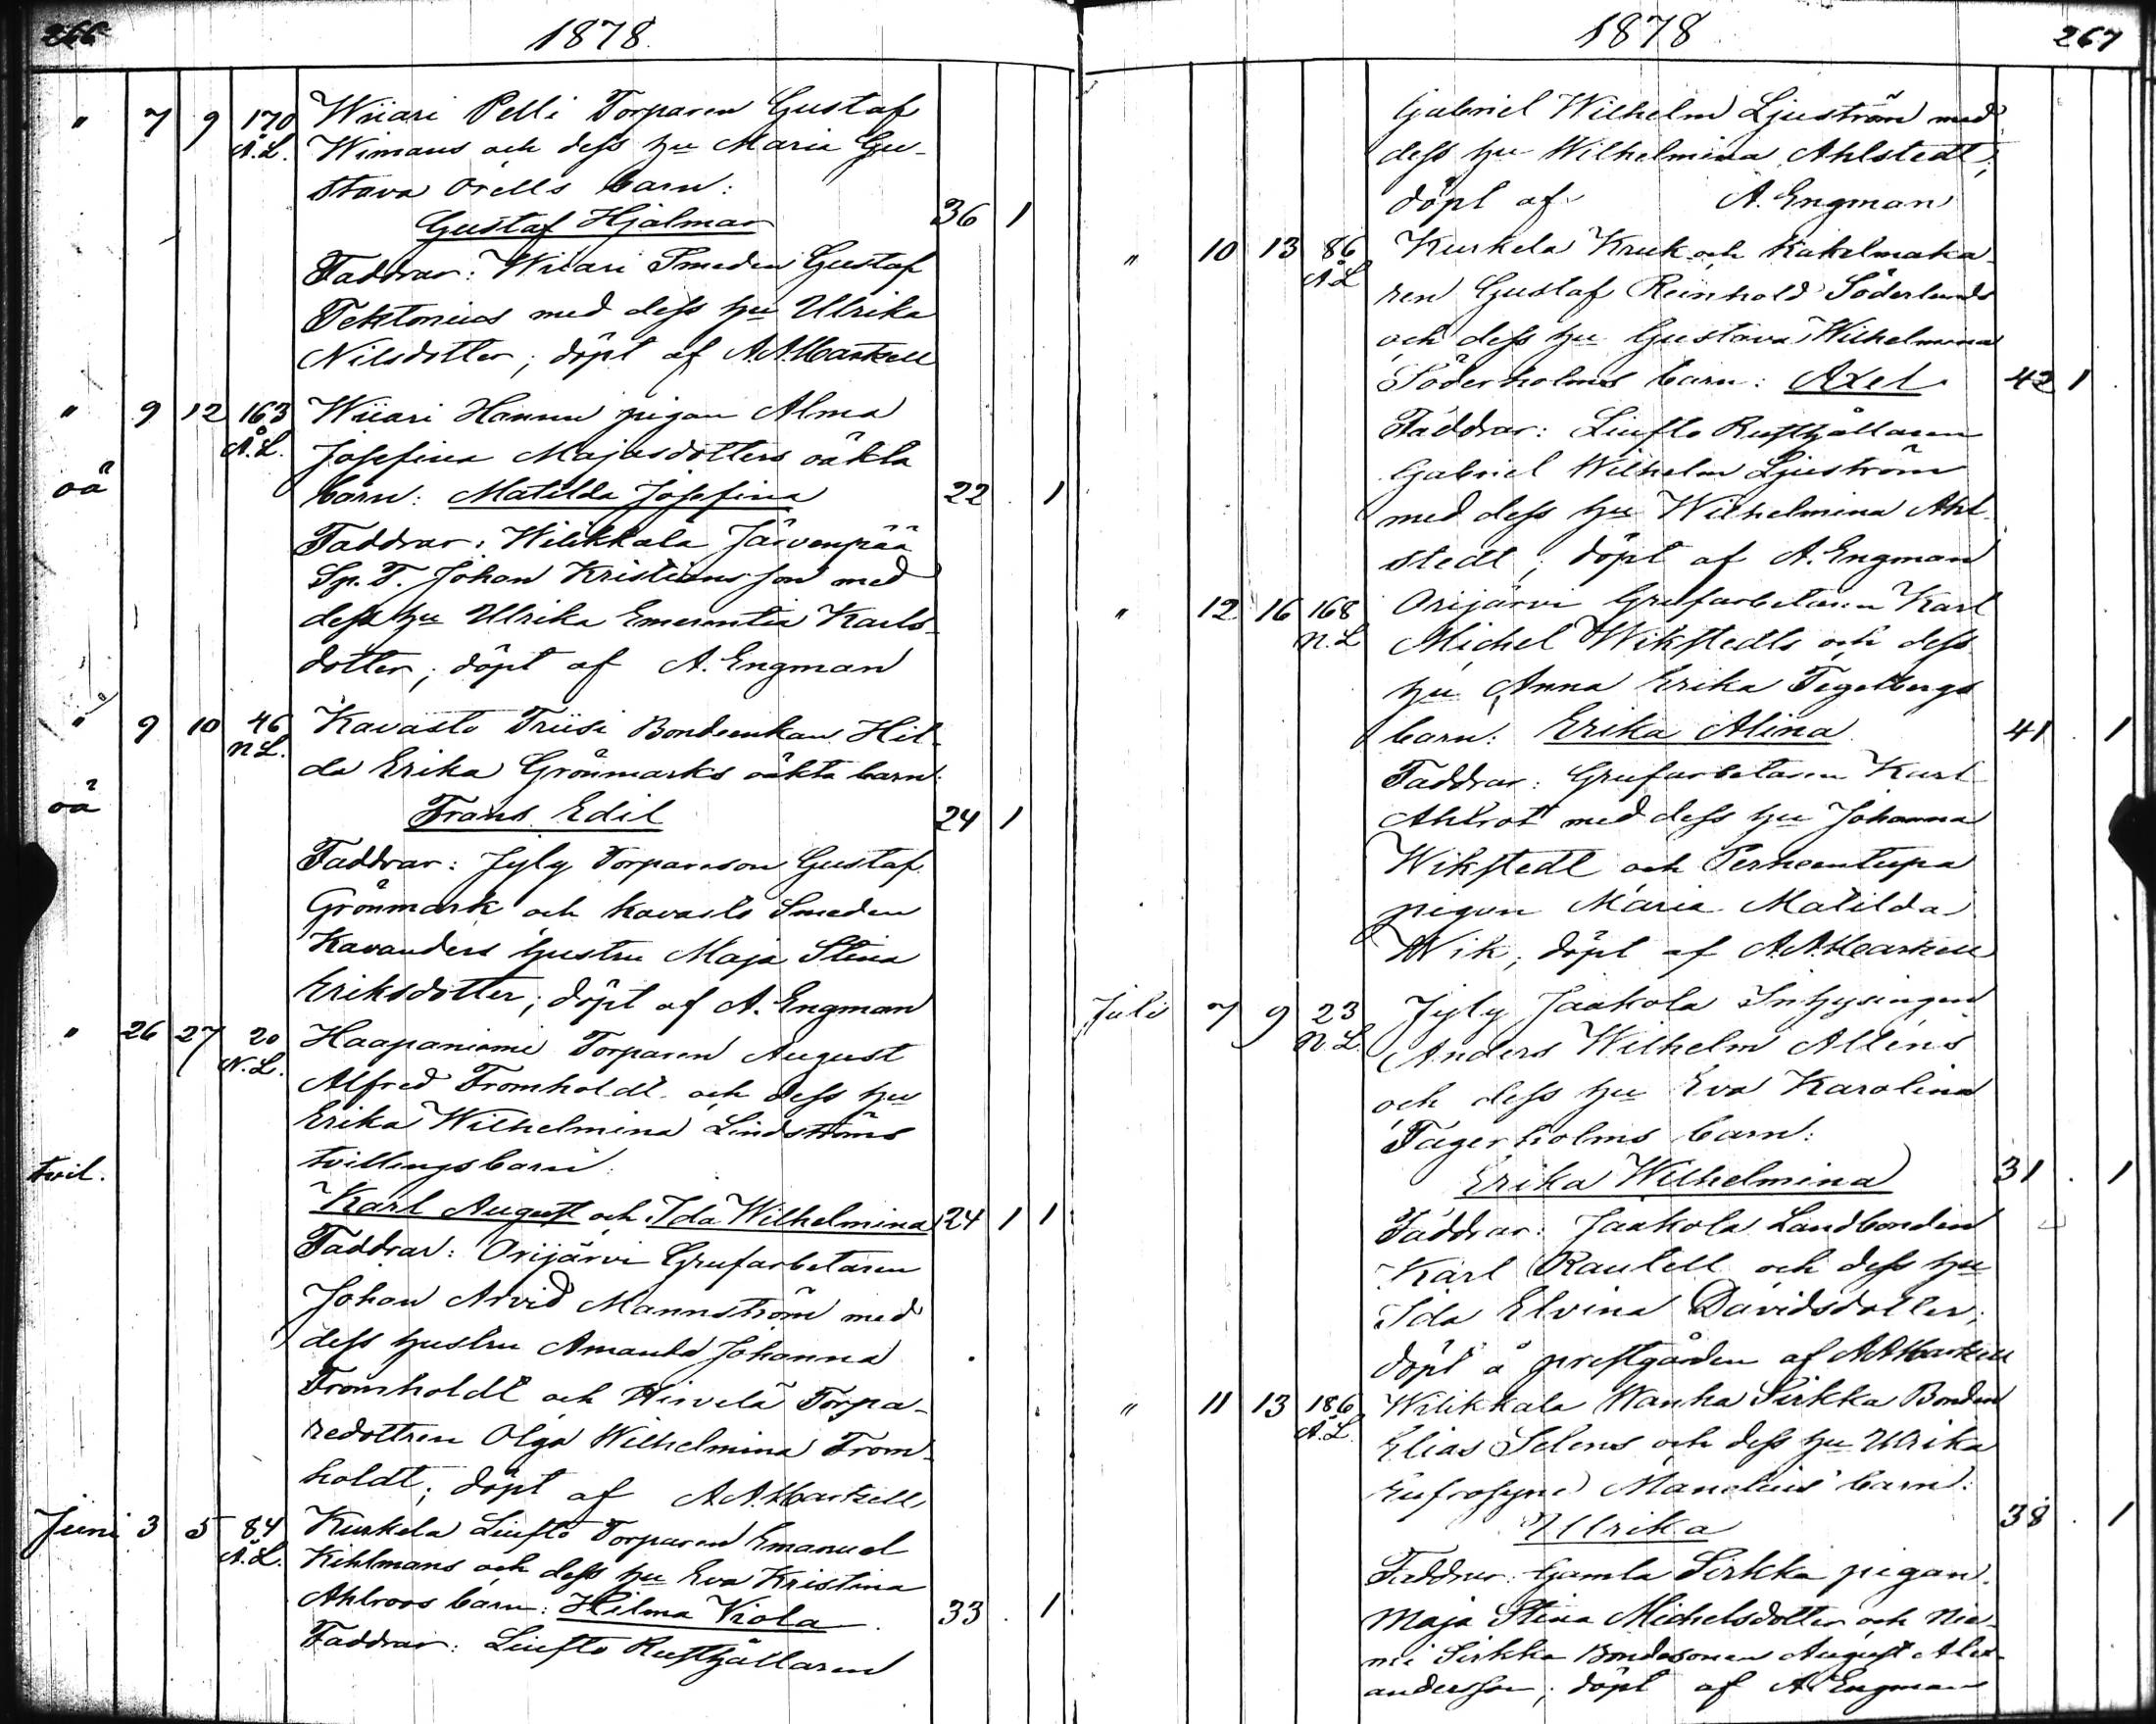 266
1878.
" 7 9 170 Wiiari Pelli Torparen Gustaf
Å.L. Wimans och dess hu Maria Gu-
stava Orells barn:
Gustaf Hjalmar 36 1
Faddrar: Wiiari Smeden Gustaf
Tektonius med dess hu Ulrika
Nilsdotter; döpt af A A Markell
" 9 12 163 Wiiari Hannu pigan Alma
Å.L. Josefina Majasdotters oäkta
oä barn: Matilda Josefina 22 . 1
Faddrar: Wilikkala Järvenpää
Sp. T. Johan Kristiansson med
dess hu Ulrika Emerentia Karls-
dotter; döpt af A. Engman
" 9 10 46 Kavasto Triisi Bondeenkan Hil-
N L. da Erika Grönmarks oäkta barn:
oä Frans Edil 24 1
Faddrar: Jyly Torpareson Gustaf
Grönmark och Kavasto Smeden
Kavanders hustru Maja Stina
Eriksdotter; döpt af A. Engman
" 26 27 20 Haapaniemi Torparen August
N.L. Alfred Fromholdt och dess hu
Erika Wilhelmina Lindströms
tvil. tvillingsbarn:
Karl August och Ida Wilhelmina 24 1 1
Faddrar: Orijärvi Grufarbetaren
Johan Arvid Mannström med
dess hustru Amanda Johanna
Fromholdt och Hirvelä Torpa-
redottren Olga Wilhelmina From-
holdt; döpt af A A Markell
Juni 3 5 84 Kurkela Liufto Torparen Emanuel
Å.L. Kihlmans och dess hu Eva Kristina
Ahlroos barn: Hilma Viola 33 . 1
Faddrar: Liufto Rusthållaren
1878.
267
Gabriel Wilhelm Ljuström med
dess hu Wilhelmina Ahlstedt;
döpt af A. Engman
" 10 13 86 Kurkela Kruk och Kakelmaka-
Å L ren Gustaf Reinhold Söderlunds
och dess hu Gustava Wilhelmina
Söderholms barn: Axel 42 1
Faddrar: Liufto Rusthållaren
Gabriel Wilhelm Ljuström
med dess hu Wilhelmina Ahl-
stedt; döpt af A. Engman
" 12 16 168 Orijärvi Grufarbetaren Karl
N.L Michel Wikstedts och dess
hu Anna Erika Tegelbergs
barn: Erika Alina 41 . 1
Faddrar: Grufarbetaren Karl
Ahlrot med dess hu Johanna
Wikstedt och Perheentupa
pigan Maria Matilda
Wik; döpt af A. A. Markell
Juli 7 9 23 Jyly Jaakola Inhysingen
N.L. Anders Wilhelm Alléns
och dess hu Eva Karolina
Fagerholms barn:
Erika Wilhelmina 31 . 1
Faddrar: Jaakola Landbonden
Karl Rautell och dess hu
Ida Elvina Davidsdotter;
döpt å prestgården af A A Markell
" 11 13 186 Wilikkala Wanha Sirkka Bonden
Å.L. Elias Selens och dess hu Ulrika
Eufrosyne Manelius barn:
Ulrika 38 . 1
Faddrar: Gamla Sirkka pigan
Maja Stina Michelsdotter och Nie-
mi Sirkka Bondesonen August Alex-
andersson; döpt af A Engman